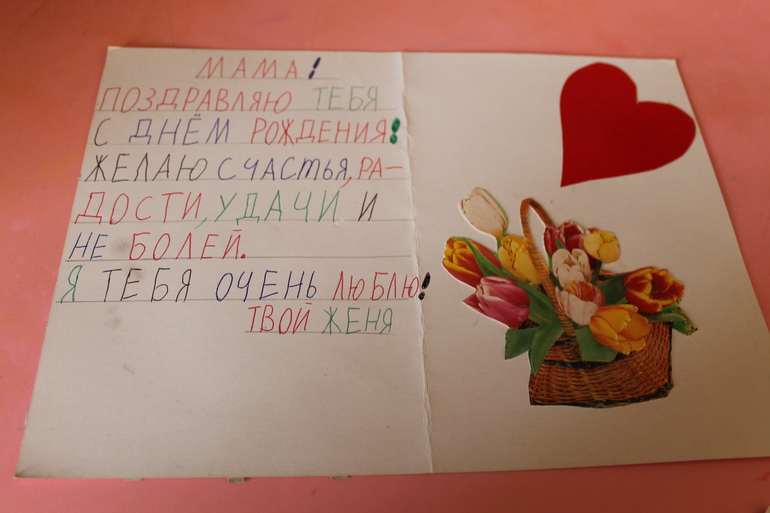 МАМА!
ПОЗДРАВЛЯЮ ТЕБЯ
С ДНЁМ РОЖДЕНИЯ!
ЖЕЛАЮ СЧАСТЬЯ, РА-
ДОСТИ, УДАЧИ И
НЕ БОЛЕЙ.
Я ТЕБЯ ОЧЕНЬ ЛЮБЛЮ!
ТВОЙ ЖЕНЯ